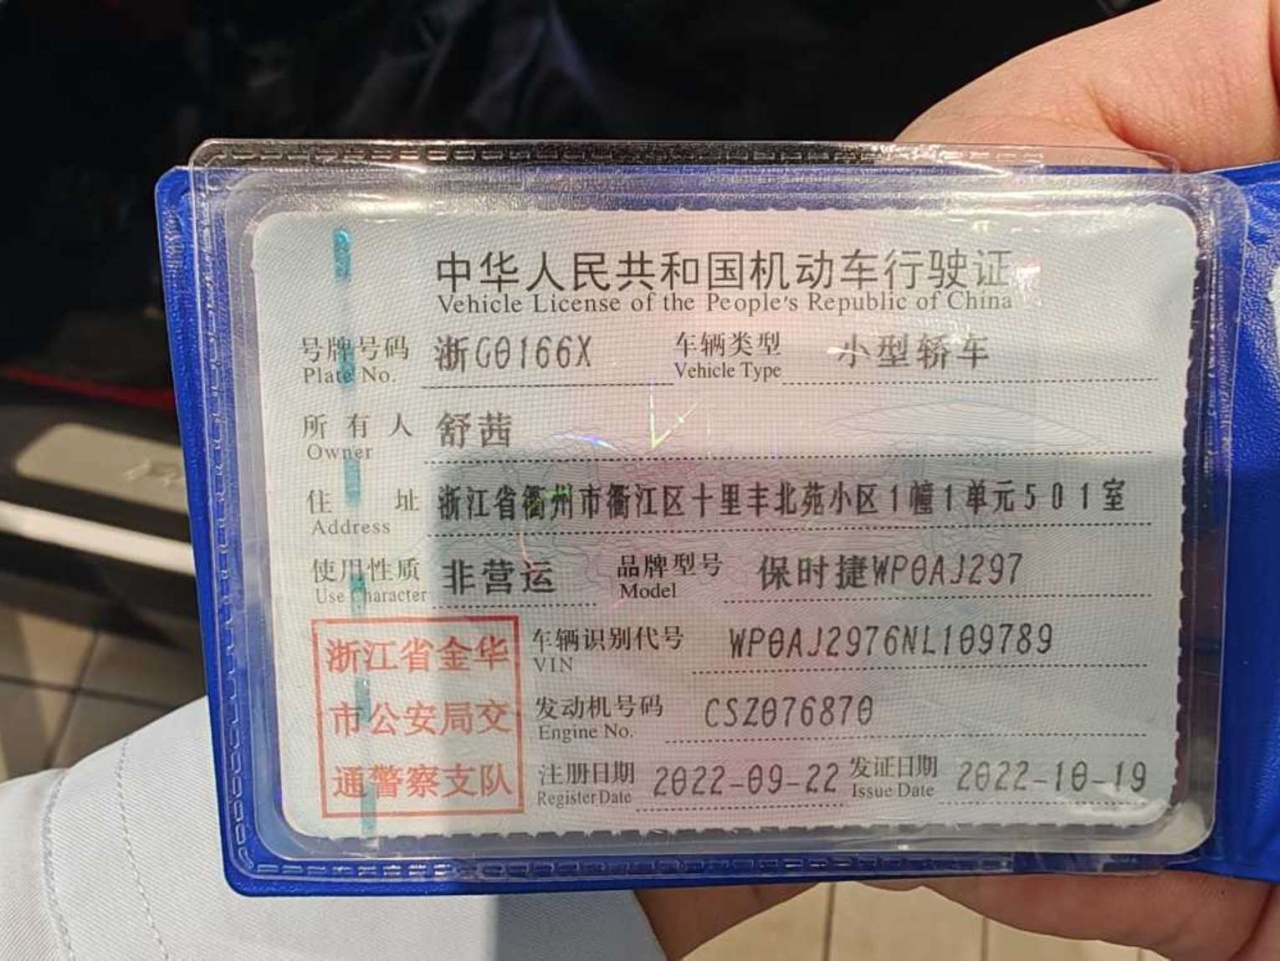 中华人民共和国机动车行驶证
Vehicle License of the People's Republic of China
号牌号码 浙G0166X 车辆类型 小型轿车
Plate No. Vehicle Type
所有人 舒茜
Owner
住址 浙江省衢州市衢江区十里丰北苑小区1幢1单元501室
Address
使用性质 非营运 品牌型号 保时捷WP0AJ297
Use Character Model
浙江省金华
市公安局交
通警察支队
车辆识别代号 WP0AJ2976NL109789
VIN
发动机号码 CSZ076870
Engine No.
注册日期 2022-09-22 发证日期 2022-10-19
Register Date Issue Date